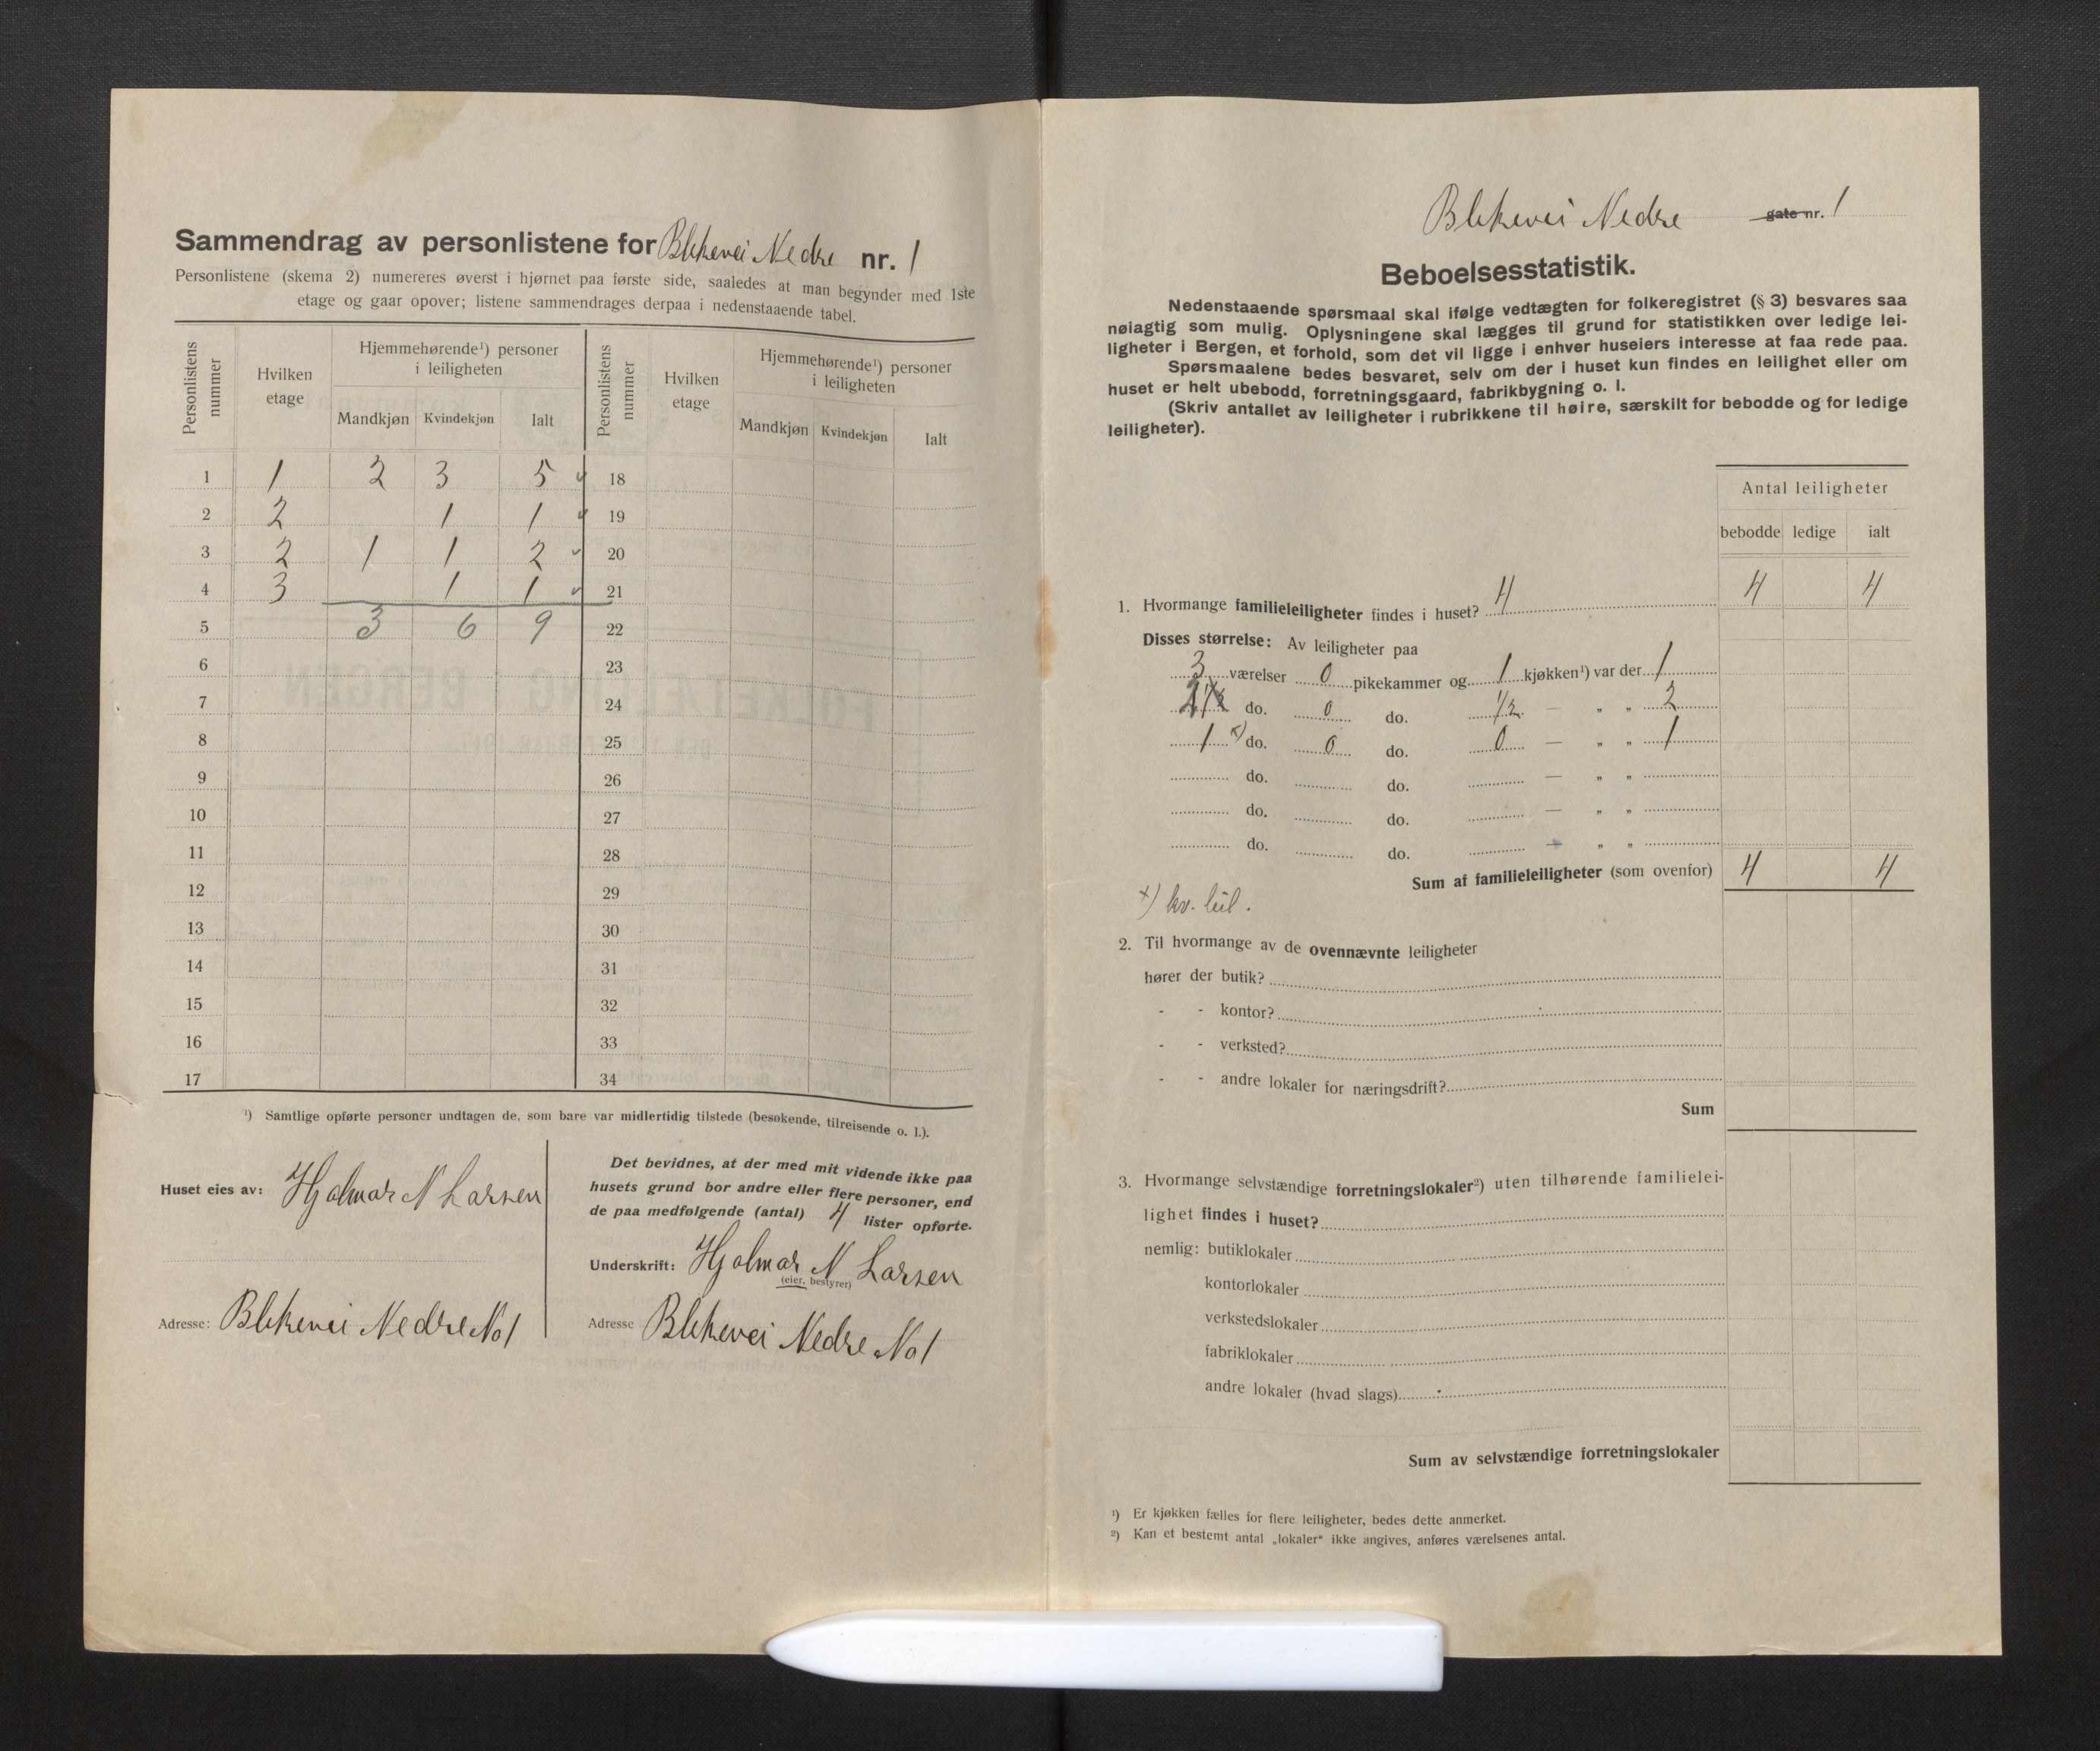 Sammendrag av personlistene for Blekevei Nedre nr. 1
Personlistene (skema 2) numereres øverst i hjørnet paa første side, saaledes at man begynder med 1ste
etage og gaar opover; listene sammendrages derpaa i nedenstaaende tabel.
Personlistens nummer
Hvilken etage
Hjemmehørende¹) personer i leiligheten
Mandkjøn Kvindekjøn Ialt
Personlistens nummer
Hvilken etage
Hjemmehørende¹) personer i leiligheten
Mandkjøn Kvindekjøn Ialt
1 1 2 3 5 18
2 2 1 1 19
3 2 1 1 2 20
4 3 1 1 21
5 3 6 9 22
6 23
7 24
8 25
9 26
10 27
11 28
12 29
13 30
14 31
15 32
16 33
17 34
¹) Samtlige opførte personer undtagen de, som bare var midlertidig tilstede (besøkende, tilreisende o. l.).
Huset eies av: Hjalmar N Larsen
Adresse: Blekevei Nedre No 1
Det bevidnes, at der med mit vidende ikke paa
husets grund bor andre eller flere personer, end
de paa medfølgende (antal) 4 lister opførte.
Underskrift: Hjalmar N Larsen
(eier, bestyrer)
Adresse Blekevei Nedre No 1
Blekevei Nedre gate nr. 1
Beboelsesstatistik.
Nedenstaaende spørsmaal skal ifølge vedtægten for folkeregistret (§ 3) besvares saa
nøiagtig som mulig. Oplysningene skal lægges til grund for statistikken over ledige lei-
ligheter i Bergen, et forhold, som det vil ligge i enhver huseiers interesse at faa rede paa.
Spørsmaalene bedes besvaret, selv om der i huset kun findes en leilighet eller om
huset er helt ubebodd, forretningsgaard, fabrikbygning o. l.
(Skriv antallet av leiligheter i rubrikkene til høire, særskilt for bebodde og for ledige
leiligheter).
Antal leiligheter
bebodde ledige ialt
1. Hvormange familieleiligheter findes i huset? 4 4 4
Disses størrelse: Av leiligheter paa
3 værelser 0 pikekammer og 1 kjøkken¹) var der 1
do. 0 do. 1/2 — „ „ 2
1 x) do. 0 do. 0 — „ „ 1
do. do. — „ „
do. do. — „ „
do. do. — „ „
Sum af familieleiligheter (som ovenfor) 4 4
x) kv. leil.
2. Til hvormange av de ovennævnte leiligheter
hører der butik?
- - kontor?
- - verksted?
- - andre lokaler for næringsdrift?
Sum
3. Hvormange selvstændige forretningslokaler²) uten tilhørende familielei-
lighet findes i huset?
nemlig: butiklokaler
kontorlokaler
verkstedslokaler
fabriklokaler
andre lokaler (hvad slags)
Sum av selvstændige forretningslokaler
¹) Er kjøkken fælles for flere leiligheter, bedes dette anmerket.
²) Kan et bestemt antal „lokaler“ ikke angives, anføres værelsenes antal.